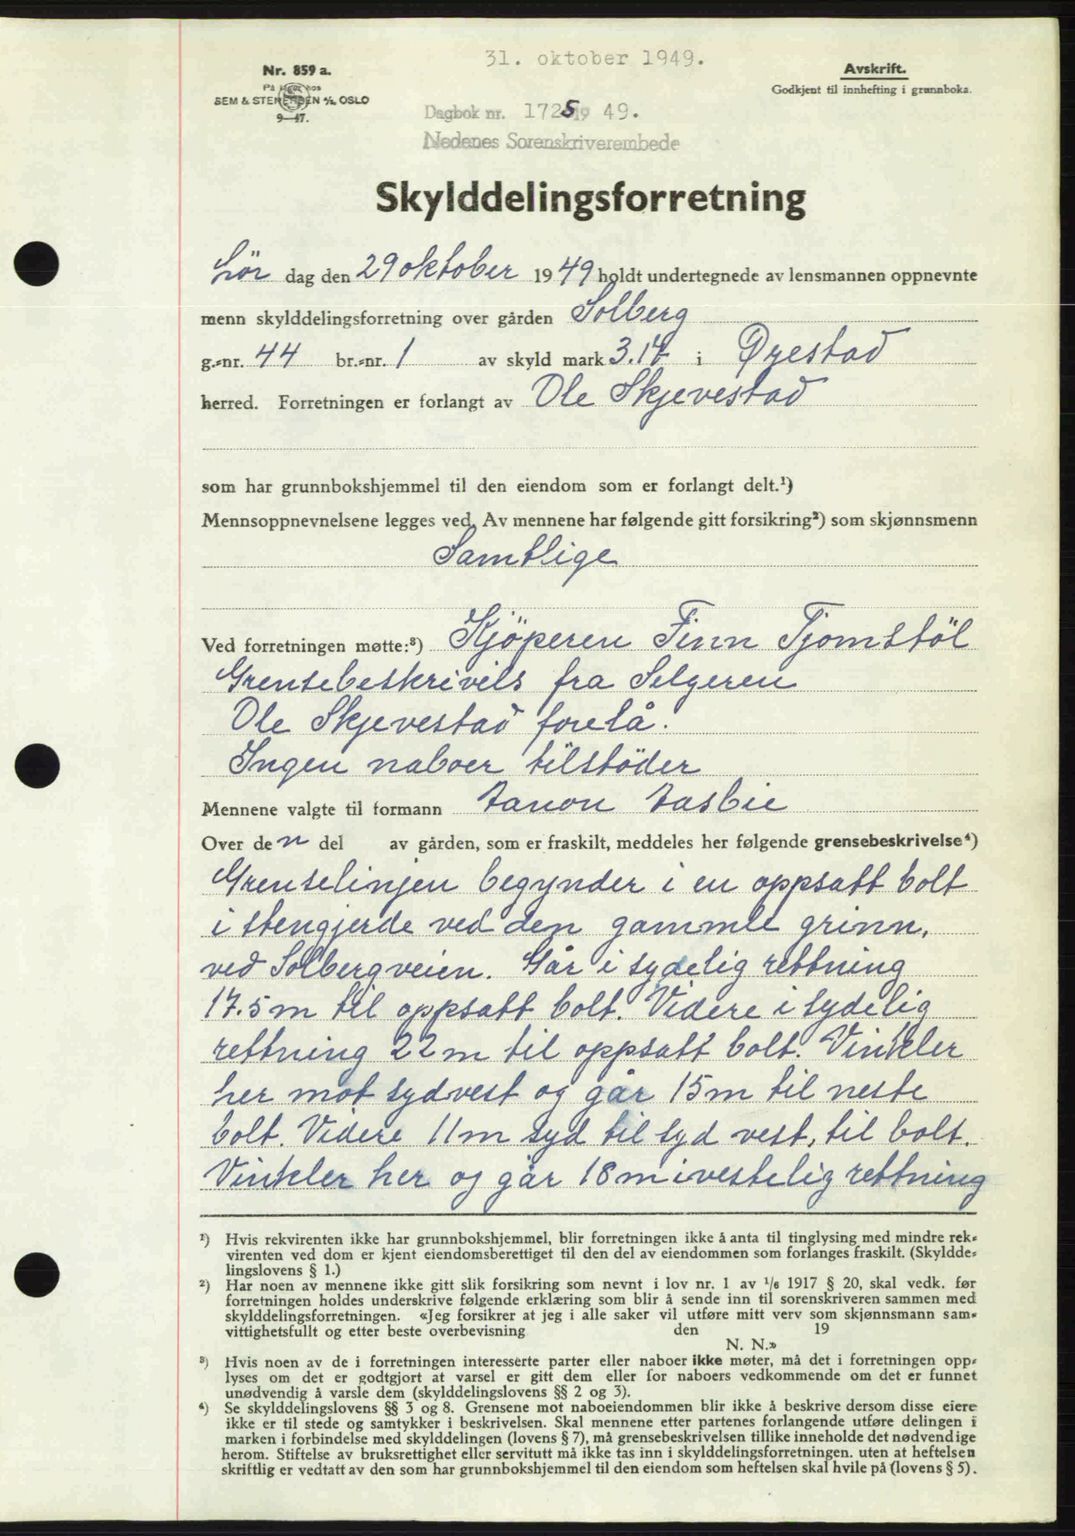 31. oktober 1949.
Nr. 859 a.
På lager hos
SEM & STENERSEN A/S, OSLO
9—47.
Avskrift.
Godkjent til innhefting i grunnboka.
Dagbok nr. 1725 19 49.
Nedenes Sorenskriverembede
Skylddelingsforretning
Lör dag den 29 oktober 1949 holdt undertegnede av lensmannen oppnevnte
menn skylddelingsforretning over gården Solberg
g.-nr. 44 br.-nr. 1 av skyld mark 3.14 i Øyestad
herred. Forretningen er forlangt av Ole Skjevestad
som har grunnbokshjemmel til den eiendom som er forlangt delt.¹)
Mennsoppnevnelsene legges ved. Av mennene har følgende gitt forsikring²) som skjønnsmenn
Samtlige
Ved forretningen møtte:³) Kjöperen Finn Tjomstöl
Grensebeskrivels fra Selgeren
Ole Skjevestad forelå.
Ingen naboer tilstöder
Mennene valgte til formann
Over den del av gården, som er fraskilt, meddeles her følgende grensebeskrivelse⁴)
Grenselinjen begynder i en oppsatt bolt
i stengjerde ved den gammle grinn,
ved Solbergveien. Går i sydelig rettning
17.5m til oppsatt bolt. Videre i sydelig
rettning 22m til oppsatt bolt. Vinkler
her mot sydvest og går 15m til neste
bolt. Videre 11m syd til syd vest, til bolt.
Vinkler her og går 18m i vestelig rettning
¹) Hvis rekvirenten ikke har grunnbokshjemmel, blir forretningen ikke å anta til tinglysing med mindre rek-
virenten ved dom er kjent eiendomsberettiget til den del av eiendommen som forlanges fraskilt. (Skyldde-
lingslovens § 1.)
²) Har noen av mennene ikke gitt slik forsikring som nevnt i lov nr. 1 av ¹/₆ 1917 § 20, skal vedk. før
forretningen holdes underskrive følgende erklæring som blir å sende inn til sorenskriveren sammen med
skylddelingsforretningen. «Jeg forsikrer at jeg i alle saker vil utføre mitt verv som skjønnsmann sam-
vittighetsfullt og etter beste overbevisning den 19
N. N.»
³) Hvis noen av de i forretningen interesserte parter eller naboer ikke møter, må det i forretningen opp-
lyses om det er godtgjort at varsel er gitt dem eller for naboers vedkommende om det er funnet
unødvendig å varsle dem (skylddelingslovens §§ 2 og 3).
⁴) Se skylddelingslovens §§ 3 og 8. Grensene mot naboeiendommen blir ikke å beskrive dersom disse eiere
ikke er til stede og samtykker i beskrivelsen. Skal mennene etter partenes forlangende utføre delingen i
marken i forbindelse med skylddelingen (lovens § 7), må grensebeskrivelsen tillike inneholde det nødvendige
herom. Stiftelse av bruksrettighet eller servitutt må ikke tas inn i skylddelingsforretningen. uten at heftelsen
skriftlig er vedtatt av den som har grunnbokshjemmel til den eiendom som heftelsen skal hvile på (lovens § 5).